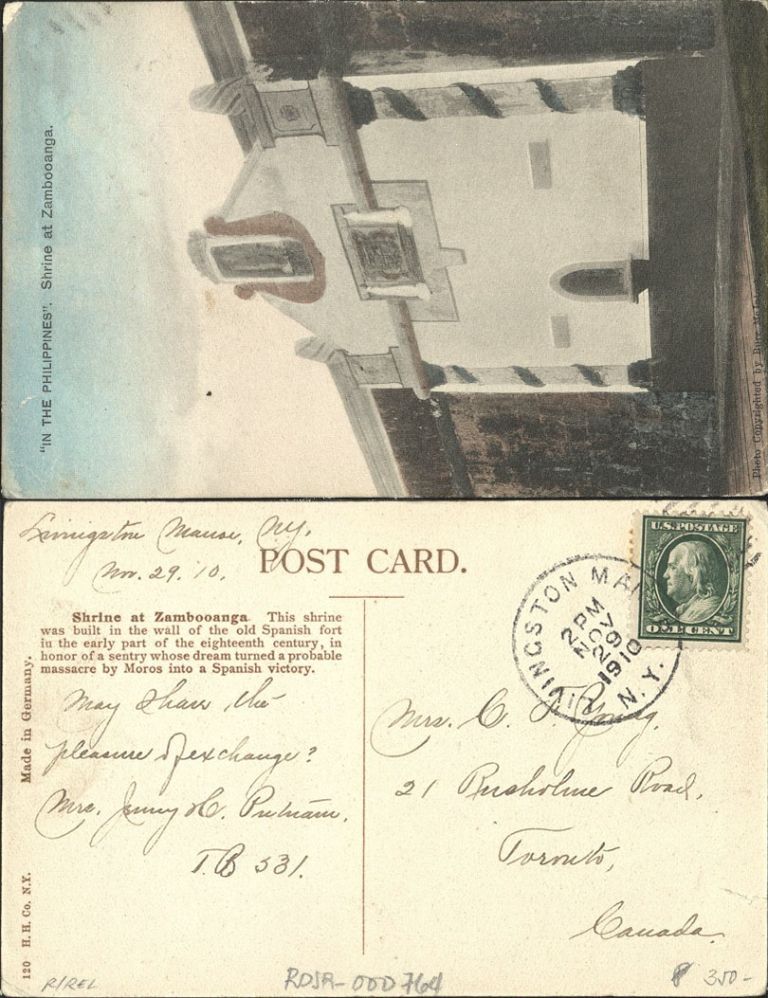 "IN THE PHILIPPINES". Shrine at Zambooanga.
Photo Copyrighted by Burr Mc
Livingston Manor, N.Y.
Nov. 29. '10.
POST CARD.
Shrine at Zambooanga This shrine
was built in the wall of the old Spanish fort
in the early part of the eighteenth century, in
honor of a sentry whose dream turned a probable
massacre by Moros into a Spanish victory.
Made in Germany.
120 H. H. Co. N.Y.
May I have the
pleasure of exchange?
Mrs. Jenny H. Putnam.
T.B 331.
LIVINGSTON MA
N.Y.
2 PM
NOV
29
1910
U.S. POSTAGE
ONE CENT
Mrs. C.
21 Rusholme Road,
Toronto,
Canada.
R/REL
RDSR-000764
₱ 350-